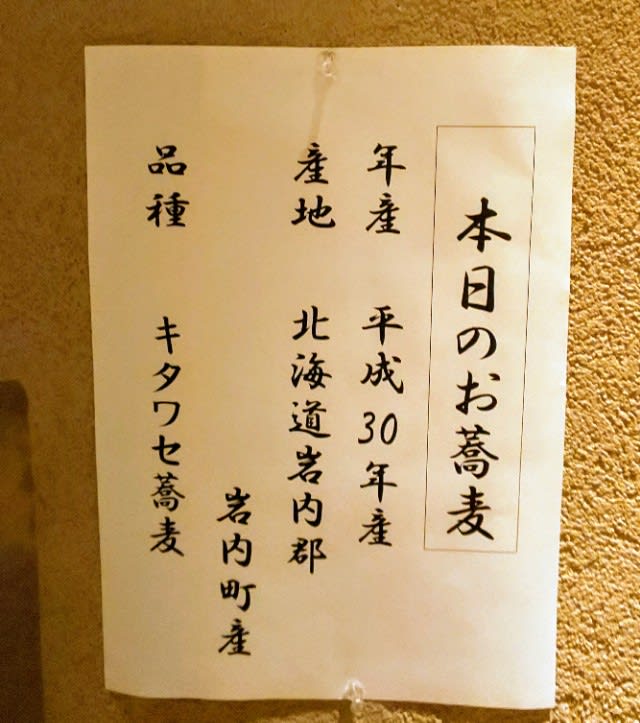 本日のお蕎麦
年産 平成30年産
産地 北海道岩内郡
岩内町産
品種 キタワセ蕎麦